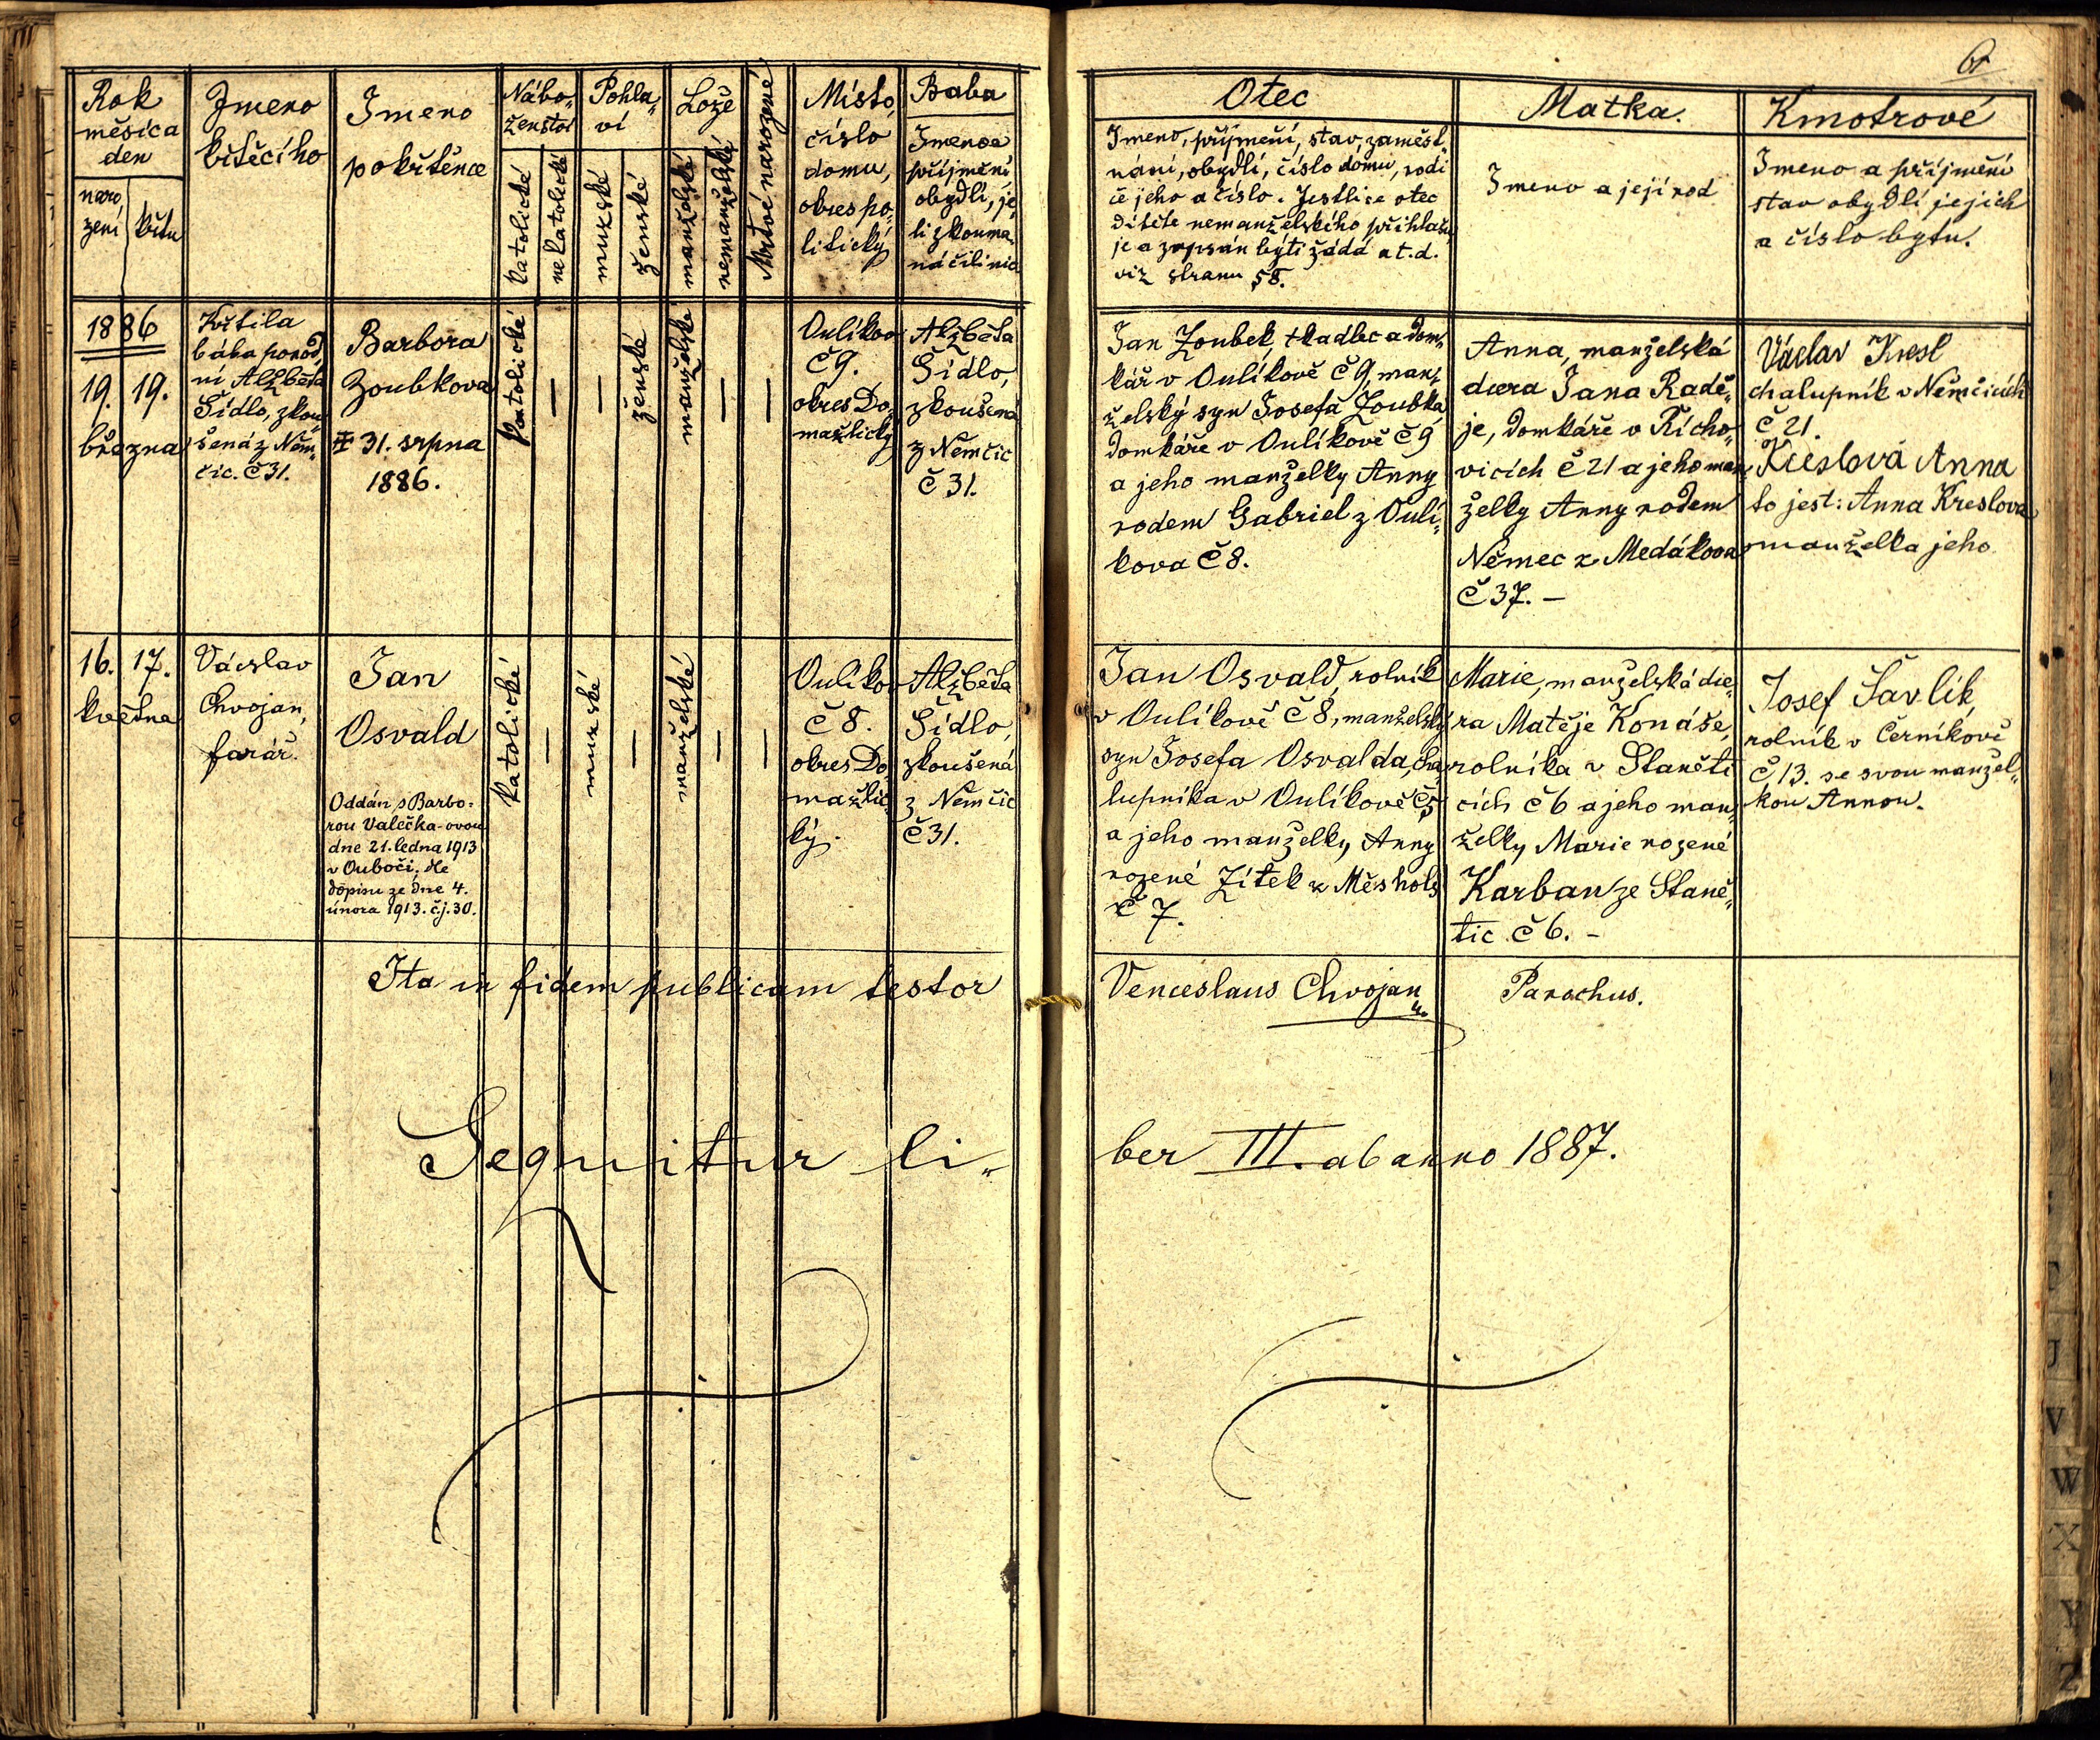 61
Rok
měsíca
den
naro
zení
křtu
Jmeno
křtěcího
Jmeno
pokřtěnce
Nábo-
ženství
katolické
nekatolické
Pohla-
ví
mužské
ženské
Lože
manželské
nemanželské
Mrtvé narozené
Místo,
číslo
domu,
okres po-
litický
Baba
Jmeno a
příjmení
obydlí, je
li zkouma-
ná čili nic
Otec
Jmeno, příjmení, stav, zaměst-
nání, obydlí, číslo domu, rodi
če jeho a číslo. Jestliže otec
dítěte nemanželského přihlašu
je a zapsán býti žádá a t. d.
viz stranu 58.
Matka.
Jmeno a její rod
Kmotrové
Jmeno a příjmení
stav obydlí jejich
a číslo bytu.
1886
19. 19.
března
Křtila
bába porod-
ní Alžběta
Šídlo, zkou-
šená z Něm-
čic. Č 31.
Barbora
Zoubkova
31. srpna
1886.
katolické
—
—
ženské
manželské
—
—
Oulíkov
Č 9.
okres Do-
mažlický
Alžběta
Šídlo,
zkoušená
z Němčic
Č 31.
Jan Zoubek, tkadlec a dom-
kář v Oulíkově Č 9, man-
želský syn Josefa Zoubka
domkáře v Oulíkově Č 9
a jeho manželky Anny
rodem Gabriel z Oulí-
kova Č 8.
Anna, manželská
dcera Jana Radě-
je, domkáře v Kícho-
vicích Č 21 a jeho man-
želky Anny rodem
Němec z Medákova
Č 37. —
Václav Kresl
chalupník v Němčicích
Č 21.
Kreslová Anna
to jest: Anna Kreslova
manželka jeho
16. 17.
května
Václav
Chvojan,
farář.
Jan
Osvald
Oddán s Barbo-
rou Valečka-ovou
dne 21. ledna 1913
v Ouboči, dle
dopisu ze dne 4.
února 1913. č.j. 30.
katolické
—
mužské
—
manželské
—
—
Oulíkov
Č 8.
okres Do-
mažlic-
ký.
Alžběta
Šídlo,
zkoušená
z Němčic
Č 31.
Jan Osvald, rolník
v Oulíkově Č 8, manželský
syn Josefa Osvalda, cha-
lupníka v Oulíkově Č 5
a jeho manželky Anny
rozené Zítek z Měshols
Č 7.
Marie, manželská dce-
ra Matěje Konáše,
rolníka v Staněti
cích Č 6 a jeho man-
želky Marie rozené
Karban ze Staně-
tic Č 6. -
Josef Šavlík,
rolník v Černíkově
Č 13. se svou manžel-
kou Annou.
Ita in fidem publicam testor Venceslaus Chvojan Parochus.
Sequitur li-ber III. ab anno 1887.
J
V
W
X
Y
Z